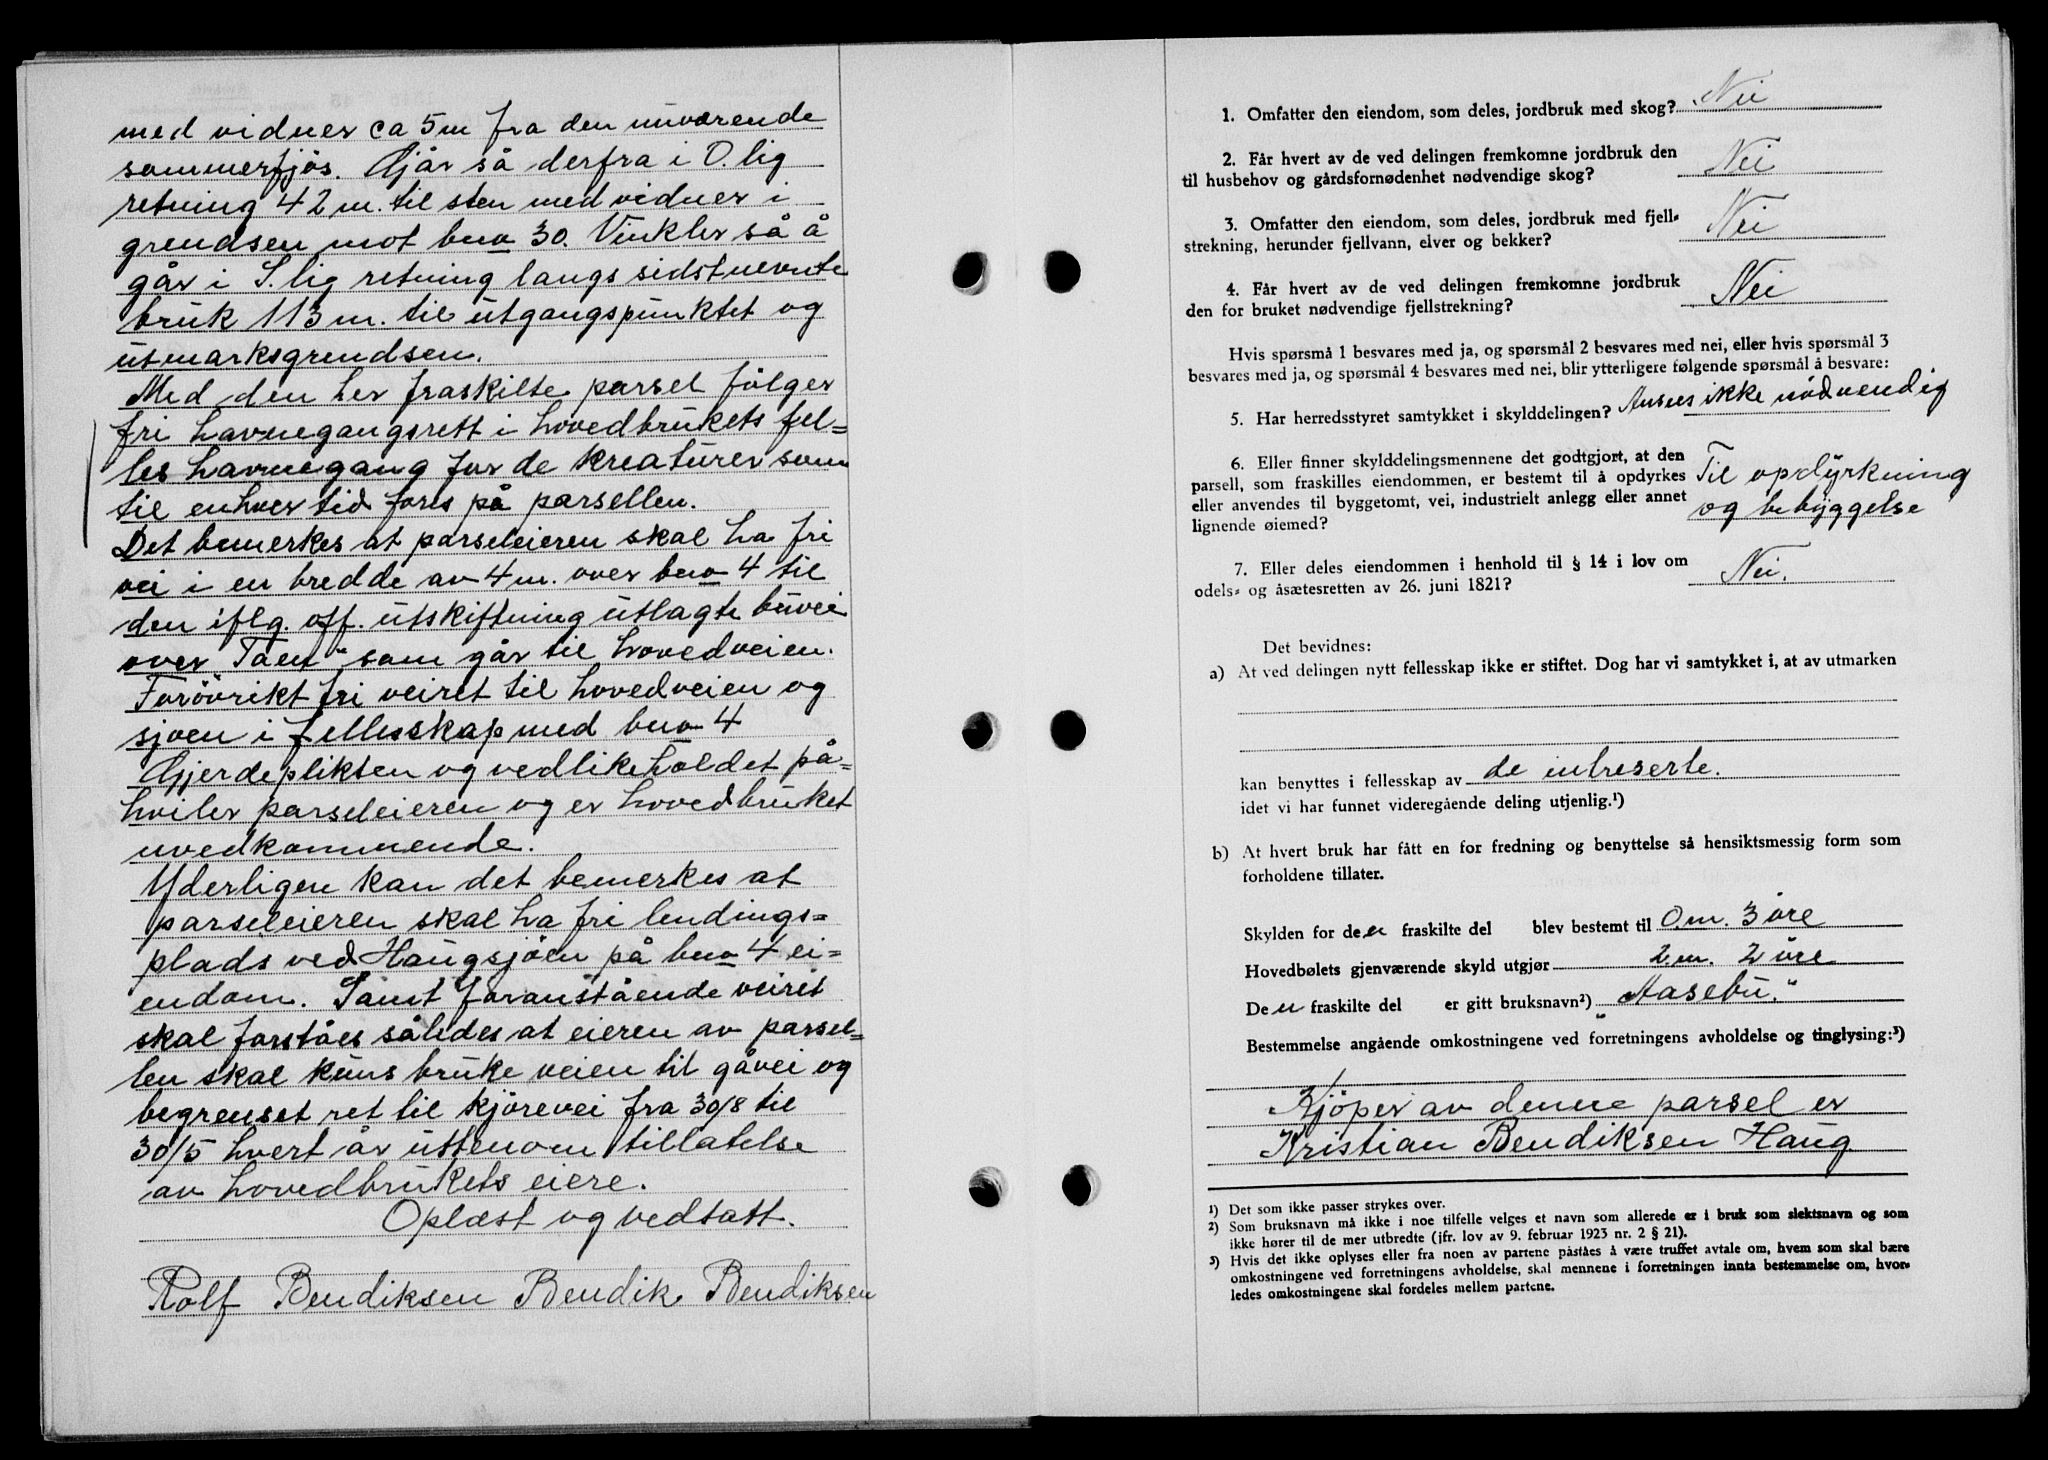 med vidner ca 5m fra den nuværende
sommerfjøs. Gjår så derfra i O.lig
retning 42 m. til sten med vidner i
grendsen mot bno 30. Vinkler så å
går i S.lig retning langs sidstnevnte
bruk 113 m. til utgangspunktet og
utmarksgrendsen.
Med den her fraskilte parsel følger
fri havnegangsrett i hovedbrukets fel=
les havnegang for de kreaturer som
til enhver tid fores på parsellen.
Det bemerkes at parseleieren skal ha fri
vei i en bredde av 4 m. over bno 4 til
den iflg. off. utskiftning utlagte buvei
over "Taen" som går til hovedveien.
Forövrikt fri veiret til hovedveien og
sjøen i fellesskap med bno 4
Gjerdeplikten og vedlikeholdet på=
hviler parseleieren og er hovedbruket
uvedkommende.
Yderligen kan det bemerkes at
parseleieren skal ha fri lendings=
plads ved Haugsjöen på bno 4 ei=
endom. Samt foranstående veiret
skal forståes således at eieren av parsel=
len skal kuns bruke veien til gåvei og
begrenset ret til kjörevei fra 30/8 til
30/5 hvert år uttenom tillatelse
av hovedbrukets eiere.
Oplæst og vedtatt.
Rolf Bendiksen Bendik Bendiksen
1. Omfatter den eiendom, som deles, jordbruk med skog? Nei
2. Får hvert av de ved delingen fremkomne jordbruk den
til husbehov og gårdsfornødenhet nødvendige skog? Nei
3. Omfatter den eiendom, som deles, jordbruk med fjell=
strekning, herunder fjellvann, elver og bekker? Nei
4. Får hvert av de ved delingen fremkomne jordbruk
den for bruket nødvendige fjellstrekning? Nei
Hvis spørsmå 1 besvares med ja, og spørsmål 2 besvares med nei, eller hvis spørsmål 3
besvares med ja, og spørsmål 4 besvares med nei, blir ytterligere følgende spørsmål å besvare:
5. Har herredsstyret samtykket i skylddelingen? Ansees ikke nödvendig
6. Eller finner skylddelingsmennene det godtgjort, at den
parsell, som fraskilles eiendommen, er bestemt til å opdyrkes Til opdyrkning
eller anvendes til byggetomt, vei, industrielt anlegg eller annet og bebyggelse
lignende øiemed?
7. Eller deles eiendommen i henhold til § 14 i lov om
odels= og åsætesretten av 26. juni 1821? Nei.
Det bevidnes:
a) At ved delingen nytt fellesskap ikke er stiftet. Dog har vi samtykket i, at av utmarken
kan benyttes i fellesskap av de intreserte.
idet vi har funnet videregående deling utjenlig.¹)
b) At hvert bruk har fått en for fredning og benyttelse så hensiktsmessig form som
forholdene tillater.
Skylden for den fraskilte del blev bestemt til 0.m. 3 öre
Hovedbølets gjenværende skyld utgjør 2.m. 2 öre
Den fraskilte del er gitt bruksnavn²) "Aasebu."
Bestemmelse angående omkostningene ved forretningens avholdelse og tinglysing:³)
Kjöper av denne parsel er
Kristian Bendiksen Haug
1) Det som ikke passer strykes over.
2) Som bruksnavn må ikke i noe tilfelle velges et navn som allerede er i bruk som slektsnavn og som
ikke hører til de mer utbredte (jfr. lov av 9. februar 1923 nr. 2 § 21).
3) Hvis det ikke oplyses eller fra noen av partene påståes å være truffet avtale om, hvem som skal bære
omkostningene ved forretningens avholdelse, skal mennene i forretningen innta bestemmelse om, hvor=
ledes omkostningene skal fordeles mellem partene.